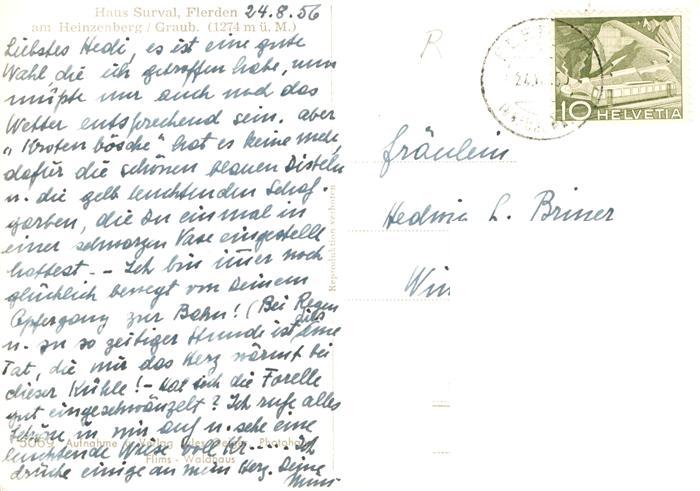 Haus Surval, Flerden 24.8.56
am Heinzenberg / Graub. (1274 m ü. M.)
Liebstes Hedi, es ist eine gute
Wahl, die ich getroffen habe, nun
müsste nur auch noch das
Wetter entsprechend sein. aber
"Krotenbösche" hat es keine mehr,
dafür die schönen blauen Disteln
u. die gelb leuchtenden Schaf-
garben, die Du einmal in
einer schwarzen Vase eingestellt
hattest. - Ich bin immer noch
glücklich bewegt von Deinem
Opfergang zur Bahn! (Bei Regen
u. zu so zeitiger Stunde ist dies eine
Tat, die mir das Herz wärmt bei
dieser Kühle! - Hat sich die Forelle
gut eingeschwänzelt? Ich rufe alles
Schöne in mir auf u. sehe eine
leuchtende Wiese voll Kr..... Ich
drücke einige an mein Herz. Deine
5069 Aufnahme Verlag Photohaus
Flims - Waldhaus
Reproduktion verboten
R
10 HELVETIA
Fräulein
Hedwig L. Briner
Win